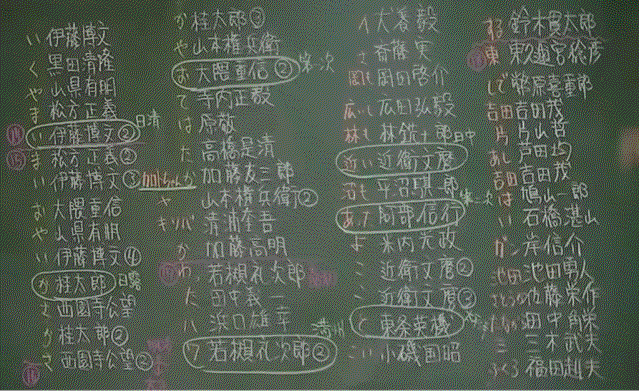 い 伊藤博文
く 黒田清隆
や 山県有明
ま 松方正義
い 伊藤博文② 日清
ま 松方正義②
い 伊藤博文③
お 大隈重信
や 山県有明
い 伊藤博文④
か 桂太郎 日露
さ 西園寺公望
か 桂太郎②
さ 西園寺公望②
か 桂太郎③
や 山本権兵衛
お 大隈重信② 第一次
て 寺内正毅
は 原敬
た 高橋是清
か 加藤友三郎
や 山本権兵衛②
キ 清浦奎吾
か 加藤高明
わ 若槻礼次郎
た 田中義一
ハ 浜口雄幸
ワ 若槻礼次郎② 満州
イ 犬養毅
さ 斎藤実
岡も 岡田啓介
広いも 広田弘毅
林も 林銑十郎 日中
近い 近衛文麿
沼も 平沼騏一郎
あっ 阿部信行 第二次
よ 米内光政
こ 近衛文麿②
こ 近衛文麿③
と 東条英機
こい 小磯国昭
する 鈴木貫太郎
東 東久邇宮稔彦
しで 幣原喜重郎
吉田 吉田茂
片 片山哲
あし 芦田均
吉田 吉田茂
は 鳩山一郎
い 石橋湛山
ガン 岸信介
池田 池田勇人
さとうの 佐藤栄作
たなか 田中角栄
三 三木武夫
ふくろ 福田赳夫